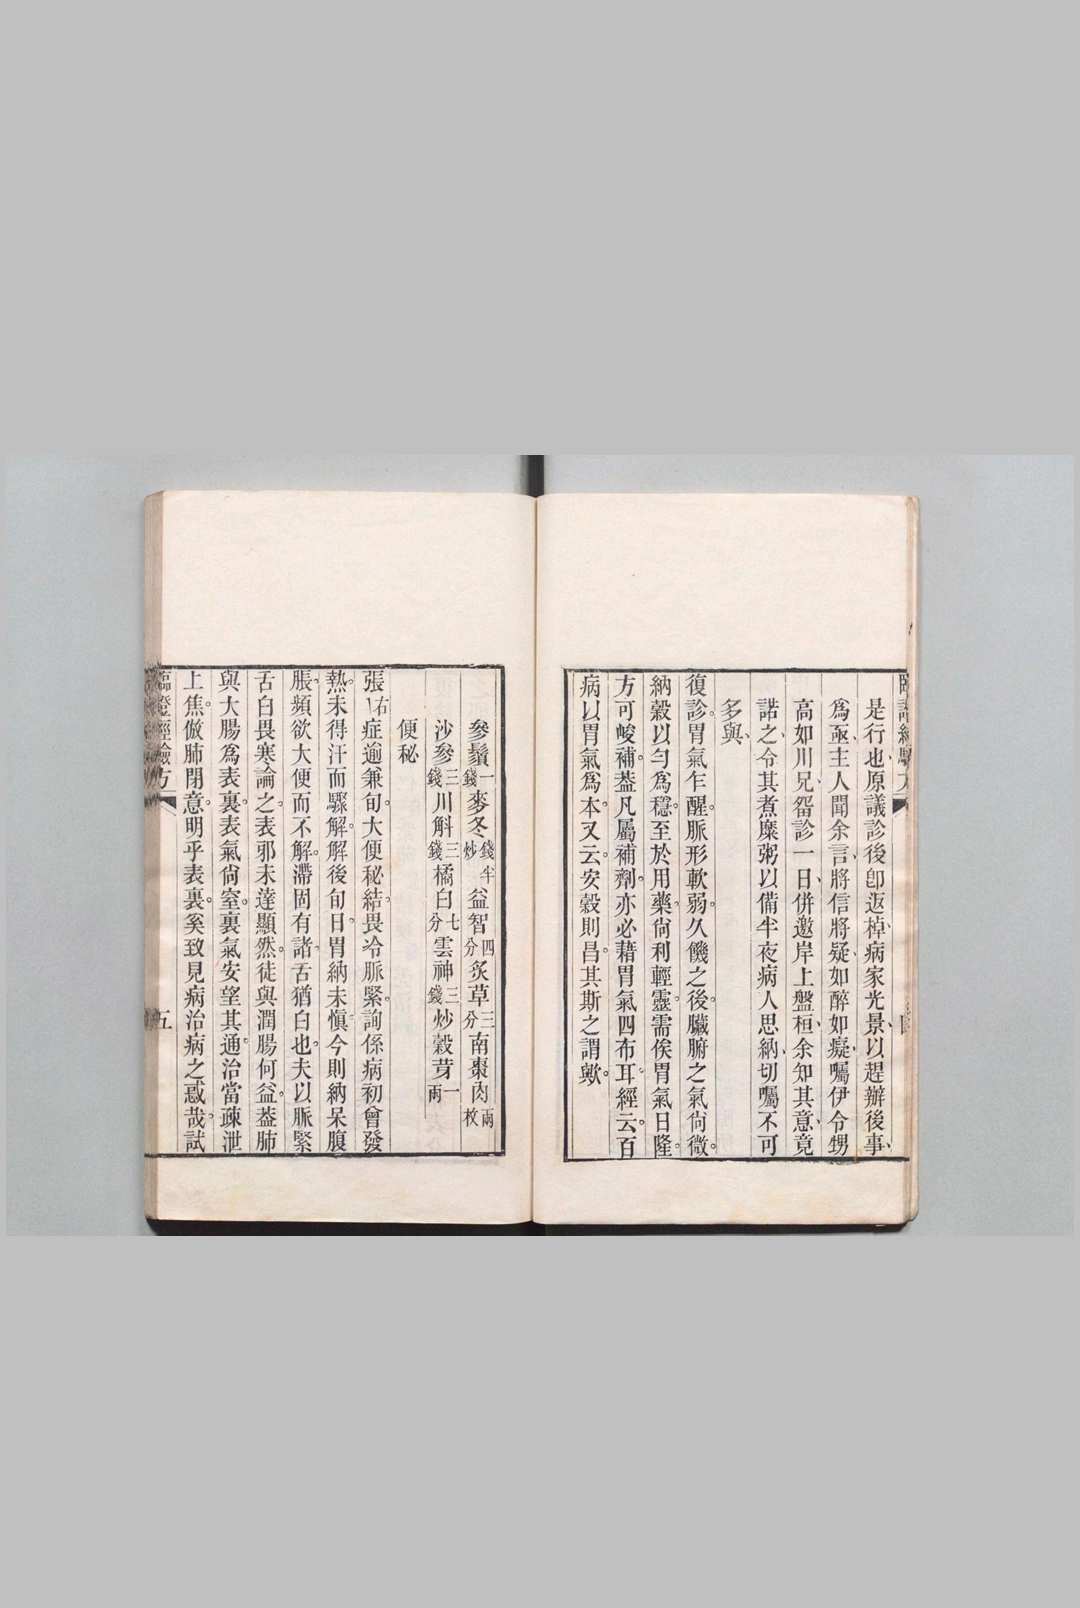 是行也原議診後卽返棹病家光景以趕辦後事
爲亟主人聞余言將信將疑如醉如癡囑伊令甥
高如川兄畱診一日併邀岸上盤桓余知其意竟
諾之令其煮糜粥以備半夜病人思納切囑不可
多與
復診胃氣乍醒脈形軟弱久饑之後臟腑之氣尙微
納穀以勻爲穩至於用藥尙利輕靈需俟胃氣日隆
方可峻補葢凡屬補劑亦必藉胃氣四布耳經云百
病以胃氣爲本又云安穀則昌其斯之謂歟
參鬚一錢 麥冬錢半炒 益智四分 炙草三分 南棗肉兩枚
沙參三錢 川斛三錢 橘白七分 雲神三錢 炒穀芽一兩
便秘
張右 症逾兼旬大便秘結畏冷脈緊詢係病初曾發
熱未得汗而驟解解後旬日胃納未愼今則納呆腹
脹頻欲大便而不解滯固有諸舌猶白也夫以脈緊
舌白畏寒論之表邪未達顯然徒與潤腸何益葢肺
與大腸爲表裏表氣尙窒裏氣安望其通治當疎泄
上焦倣肺閉意明乎表裏奚致見病治病之惑哉試
臨證經驗方
五